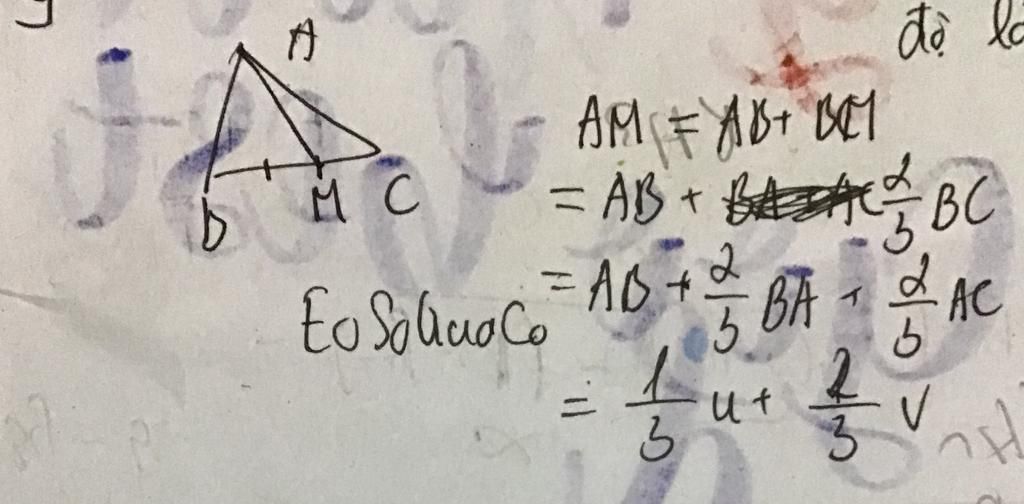 độ
A
B
M C
AM = AB + BM
= AB + \frac{2}{3} BC
= AB + \frac{2}{3} BA + \frac{2}{3} AC
= \frac{1}{3} u + \frac{2}{3} v